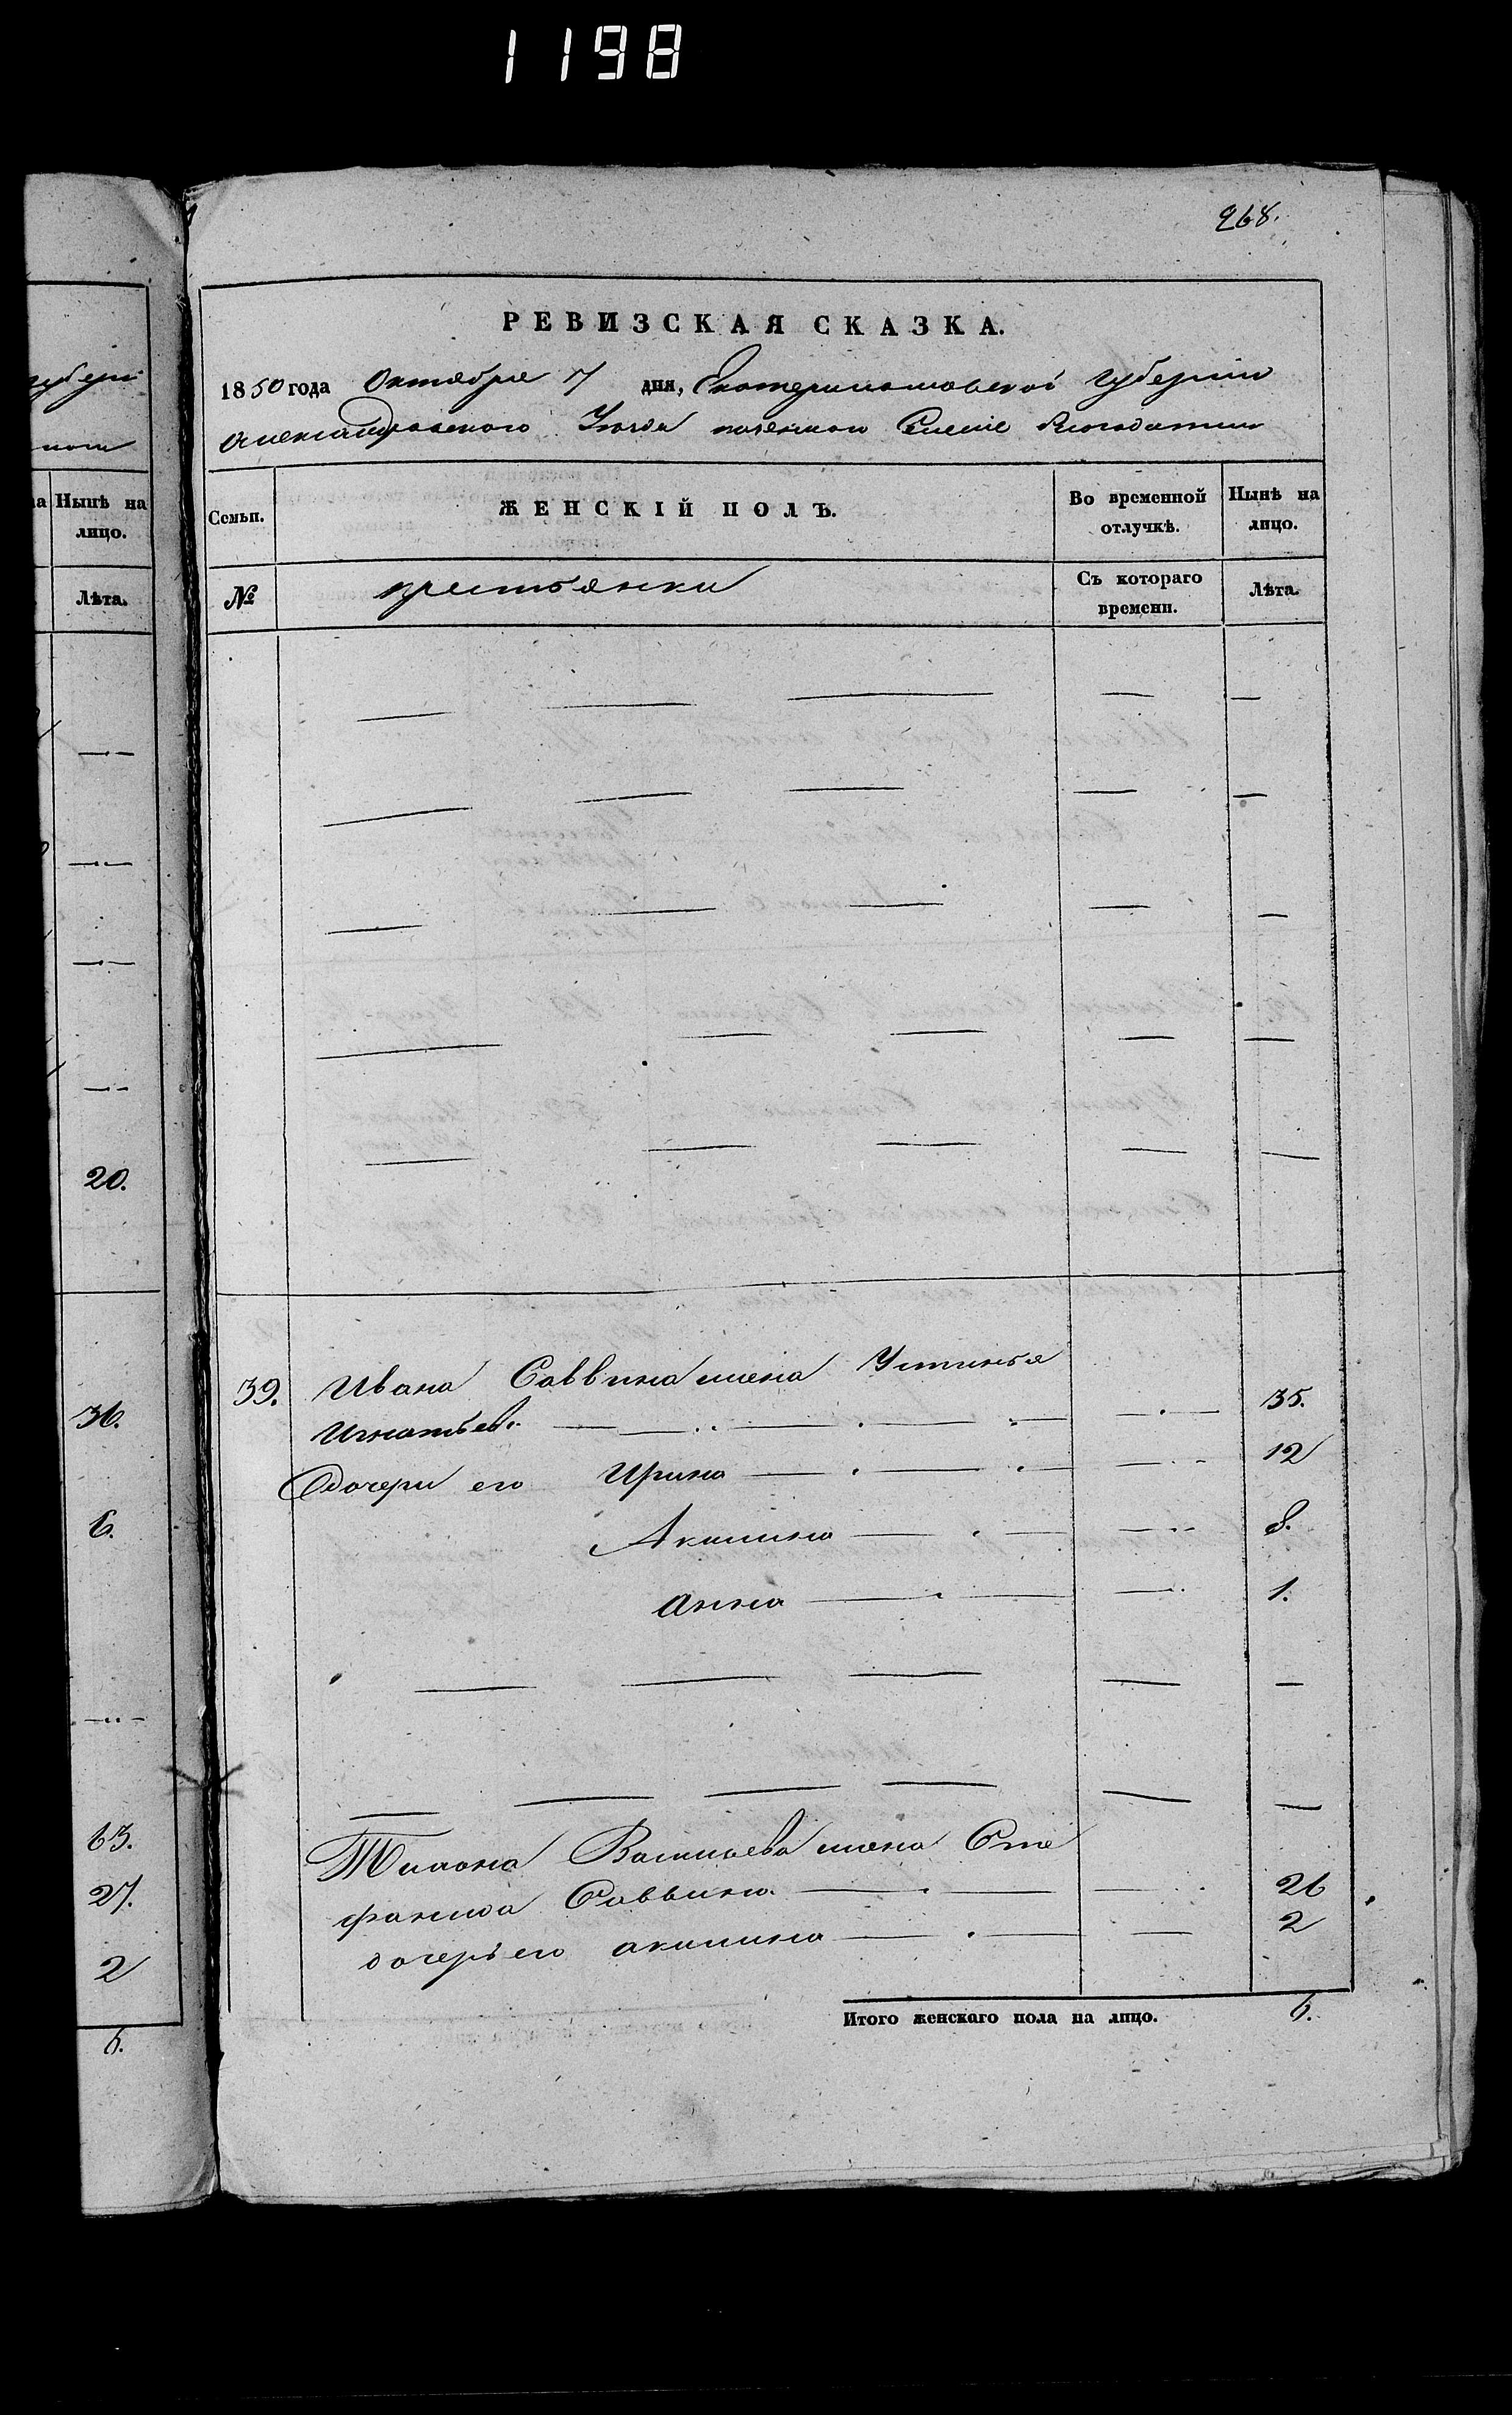 1198
268.
РЕВИЗСКАЯ СКАЗКА.
1850 года Октября 7 дня, Екатеринославской Губернии
Александровского Уезда казенном Селеніе
губерн
Семьи.
ЖЕНСКІЙ ПОЛЪ.
Во временной отлучкѣ.
Нынѣ на лицо.
№
крестьянки
Съ котораго времени.
Лѣта.
на Нынѣ на лицо.
Лѣта.
20.
36.
6.
63.
27.
2
6.
39. Ивана Саввина жена Устинья
Игнатьев. 35.
Дочери его Ирина 12
Акилина 8.
Анна 1.
Василиева жена Сте
фанида Саввина 26
дочерь его акилина 2
Итого женскаго пола на лицо. 6.